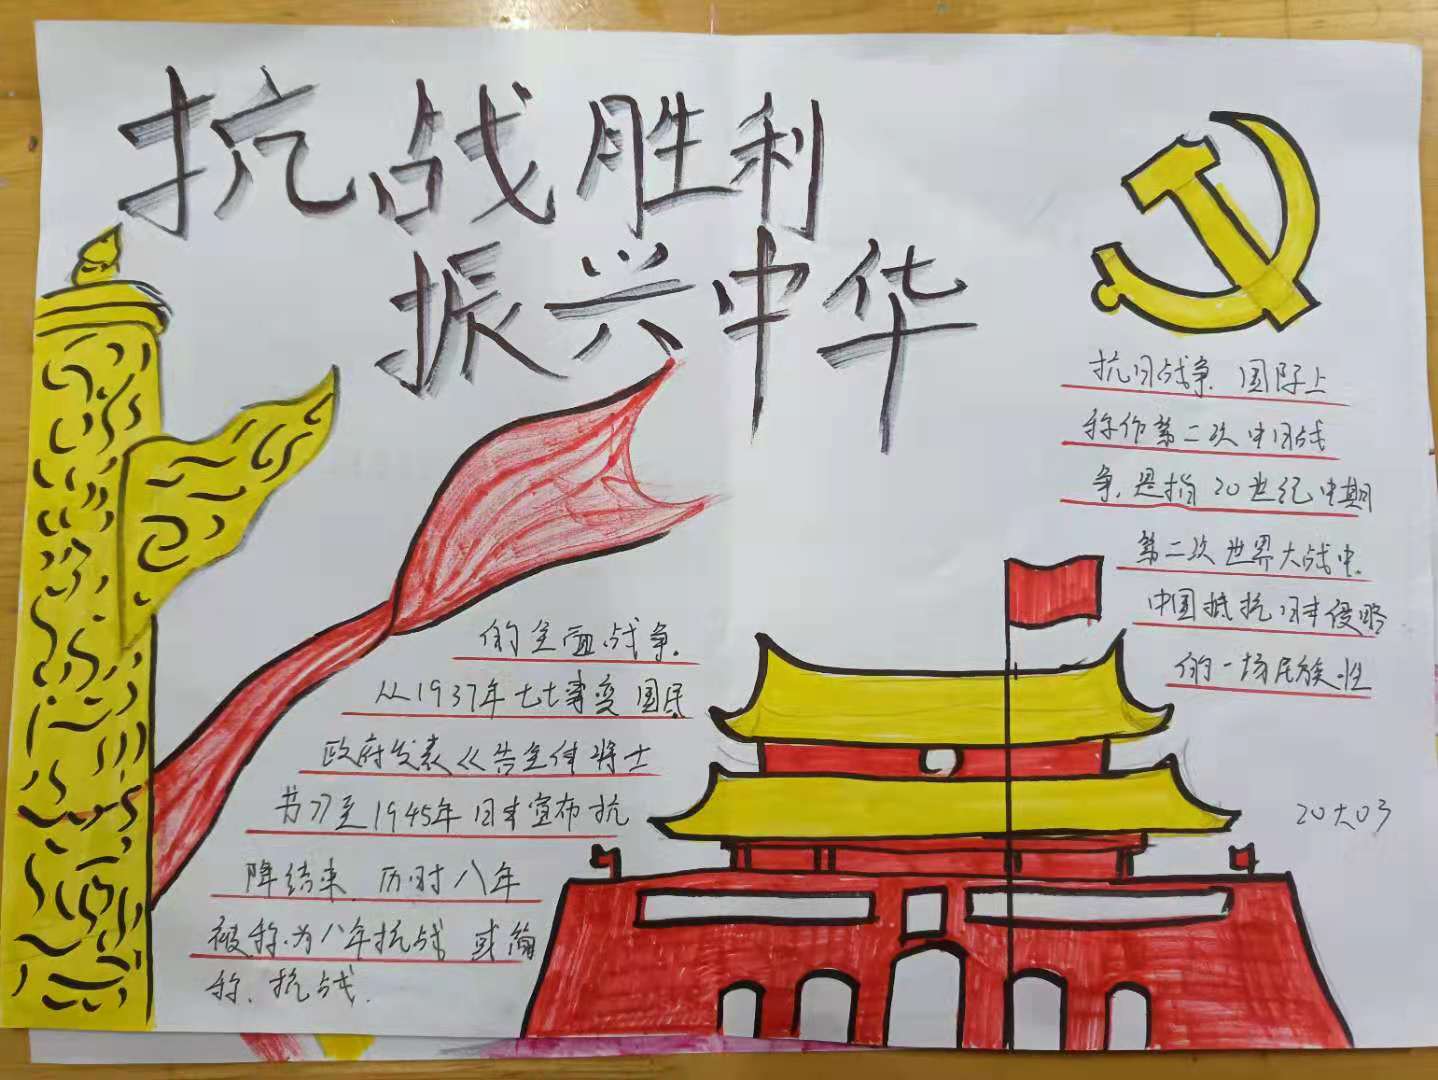 抗战胜利
振兴中华
抗日战争 国际上
称作第二次中日战
争.是指20世纪中期
第二次世界大战中.
中国抵抗日本侵略
的一场民族性
的全面战争.
从1937年七七事变国民
政府发表《告全体将士
书》至1945年日本宣布抗
降结束 历时八年
被称为八年抗战 或简
称.抗战.
20大03